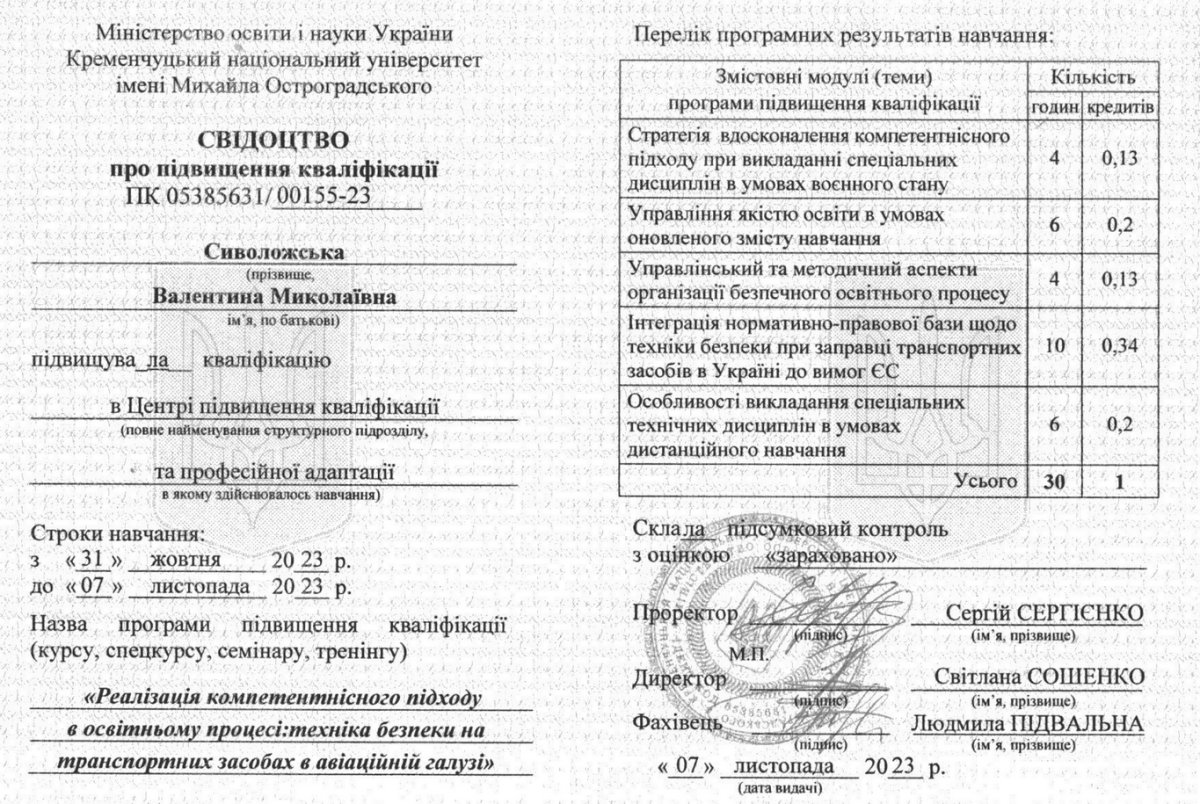 Міністерство освіти і науки України
Кременчуцький національний університет
імені Михайла Остроградського
СВІДОЦТВО
про підвищення кваліфікації
ПК 05385631/ 00155-23
Сиволожська
(прізвище,
Валентина Миколаївна
ім’я, по батькові)
підвищува ла кваліфікацію
в Центрі підвищення кваліфікації
(повне найменування структурного підрозділу,
та професійної адаптації
в якому здійснювалось навчання)
Строки навчання:
з «31» жовтня 20 23 р.
до «07» листопада 20 23 р.
Назва програми підвищення кваліфікації
(курсу, спецкурсу, семінару, тренінгу)
«Реалізація компетентнісного підходу
в освітньому процесі:техніка безпеки на
транспортних засобах в авіаційній галузі»
Перелік програмних результатів навчання:
Змістовні модулі (теми)
програми підвищення кваліфікації
Кількість
годин кредитів
Стратегія вдосконалення компетентнісного
підходу при викладанні спеціальних
дисциплін в умовах воєнного стану
4 0,13
Управління якістю освіти в умовах
оновленого змісту навчання
6 0,2
Управлінський та методичний аспекти
організації безпечного освітнього процесу
4 0,13
Інтеграція нормативно-правової бази щодо
техніки безпеки при заправці транспортних
засобів в Україні до вимог ЄС
10 0,34
Особливості викладання спеціальних
технічних дисциплін в умовах
дистанційного навчання
6 0,2
Усього 30 1
Скла ла підсумковий контроль
з оцінкою «зараховано»
Проректор Сергій СЕРГІЄНКО
(підпис) (ім’я, прізвище)
М.П.
Директор Світлана СОШЕНКО
(підпис) (ім’я, прізвище)
Фахівець Людмила ПІДВАЛЬНА
(підпис) (ім’я, прізвище)
«07» листопада 2023 р.
(дата видачі)